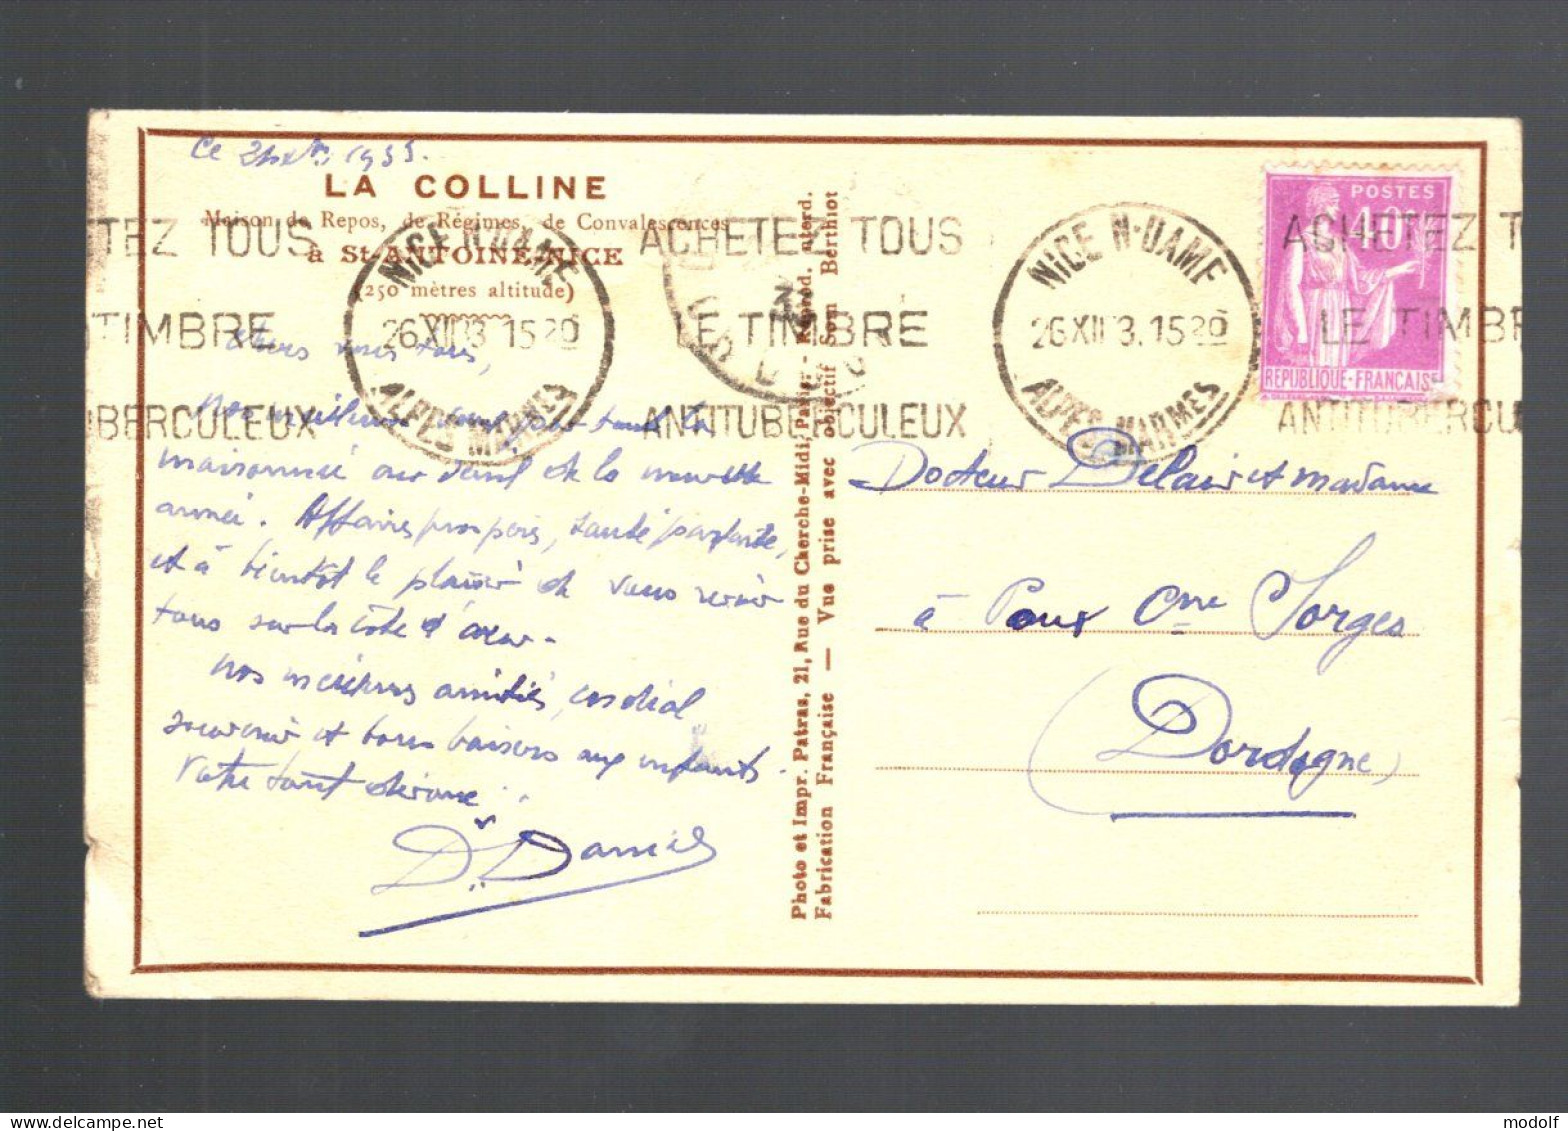 Ce 1933.
LA COLLINE
Maison de Repos, de Régimes, de Convalescences
à St-ANTOINE-NICE
(250 mètres altitude)
TEZ TOUS
TIMBRE
BERCULEUX
NICE N-DAME
26 XII 3. 15 20
ALPES MARMES
ACHETEZ TOUS
LE TIMBRE
ANTITUBERCULEUX
NICE N-DAME
26 XII 3. 15 20
ALPES MARMES
ACHETEZ T
LE TIMBR
ANTITUBERCU
POSTES
40
REPUBLIQUE-FRANÇAISE
Chers amis tous,
Nos meilleurs vœux pour toute la
maisonnée au seuil de la nouvelle
année. Affaires prospères, santé parfaite,
et à bientôt le plaisir de vous revoir
tous sur la côte d'azur.
Nos meilleures amitiés, cordial
souvenir et bons baisers aux enfants.
Votre tout dévoué.
Dr. Daniel
Photo et Impr. Patras, 21, Rue du Cherche-Midi, Paris - Reprod. interd.
Fabrication Française — Vue prise avec objectif Som Berthiot
Docteur Delair et Madame
à Cne Sorges
Dordogne
modolf